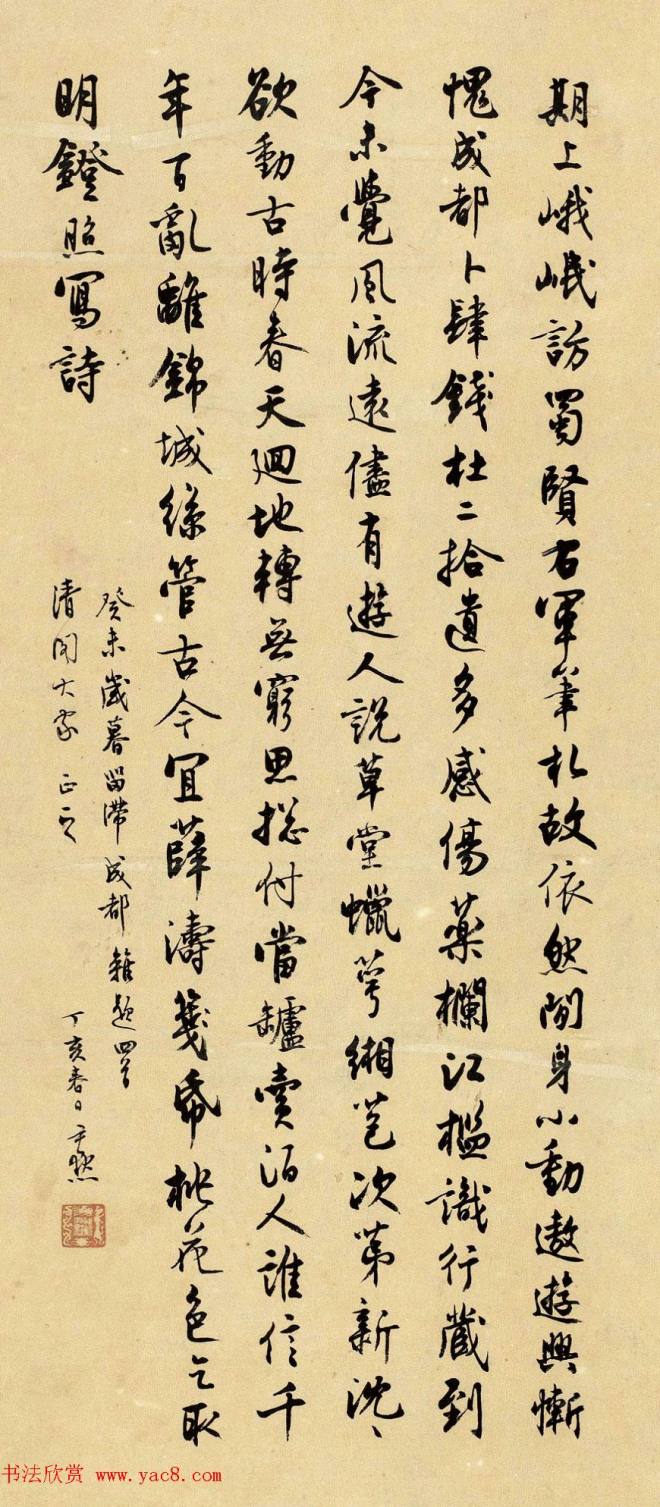 期上峨岷訪蜀賢右軍筆札故依然閒身小動遨遊興慚
愧成都卜肆錢杜二拾遺多感傷藥欄江檻識行藏到
今未覺風流遠儘有遊人說草堂蠟萼緗苞次第新沈〻
欲動古時春天迴地轉無窮思摠付當罏賣酒人誰信千
年百亂離錦城絲管古今宜薛濤箋紙桃花色乞取
明鐙照寫詩
癸未歲暮留滯成都雜題四首
清閣大家正之
丁亥春日尹默
书法欣赏 www.yac8.com